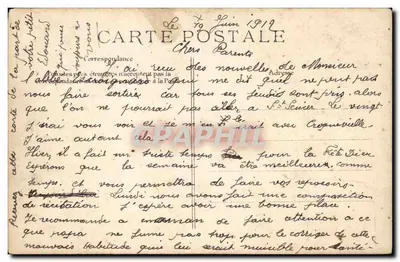 Le 19 Juin 1919
CARTE POSTALE
Chers Parents
Correspondance
J'ai reçu des nouvelles de Monsieur
Adresse
qui me dit qu'il ne peut pas
nous faire sortir car tous ses jeudis sont pris alors
que l'on ne pourrait pas aller à St Le vingt
j'irai vous voir et je m'
avec
J'aime autant
Hier, il a fait un temps pour la Fête Dieu
Espérons que la semaine va être meilleure comme
temps et vous permettra de faire vos
lundi nous avons fait une composition
de récitation J'espère avoir une bonne place
Je recommande à maman de faire attention à ce
que papa ne fume pas trop pour le corriger de cette
mauvaise habitude qui lui serait nuisible pour santé
Recevez cette carte de la part de
votre petit
Edouard
qui pense
toujours à
vous